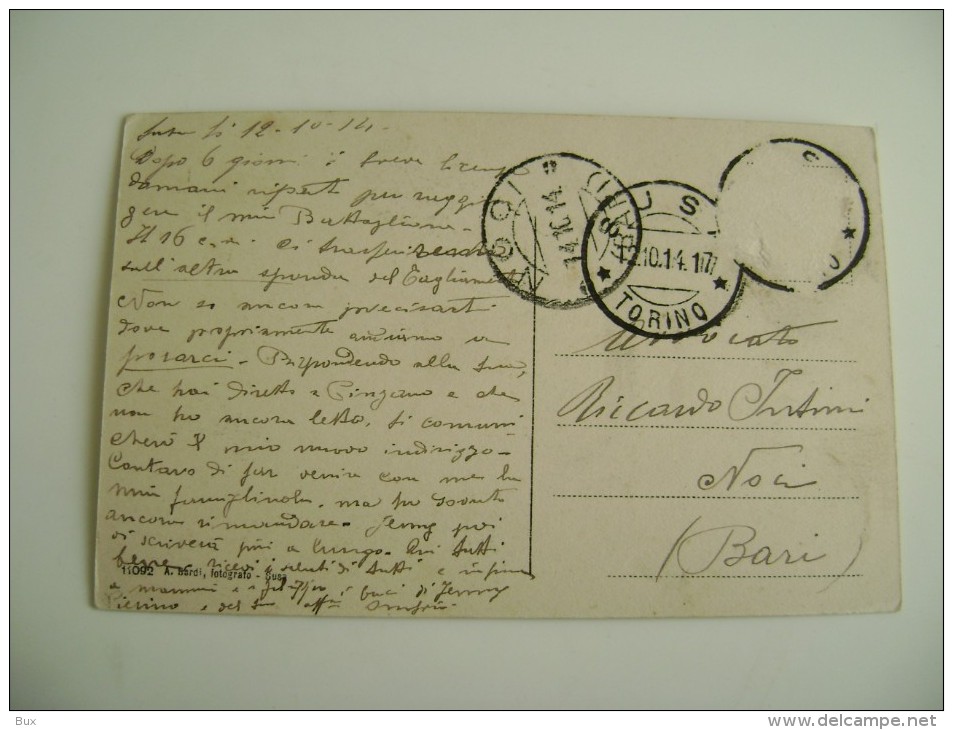 Susa li 12-10-14-
Dopo 6 giorni di breve licenza
domani riparto per raggiun
gere il mio Battaglione.
Il 16 c.m. ci trasferiremo
sull'altra sponda del Tagliamento
Non so ancora precisarti
dove propriamente andiamo a
posarci - Rispondendo alla tua,
che hai diretta a Pinzano e che
non ho ancora letto, ti comuni
cherò il mio nuovo indirizzo -
Contavo di far venire con me la
mia famigliuola, ma ho dovuto
ancora rimandare - Jenny poi
ti scriverà più a lungo. Qui tutti
bene - ricevi i saluti di tutti e infine
a mamma e i baci di Jenny
Pierino e del
11092 A. Bardi, fotografo - Susa
NOCI (BARI)
14.10.14
SUSA
12.10.14.17
* TORINO *
S
O *
Avvocato
Riccardo Intini
Noci
(Bari)
Bux
http://www.delcampe.net